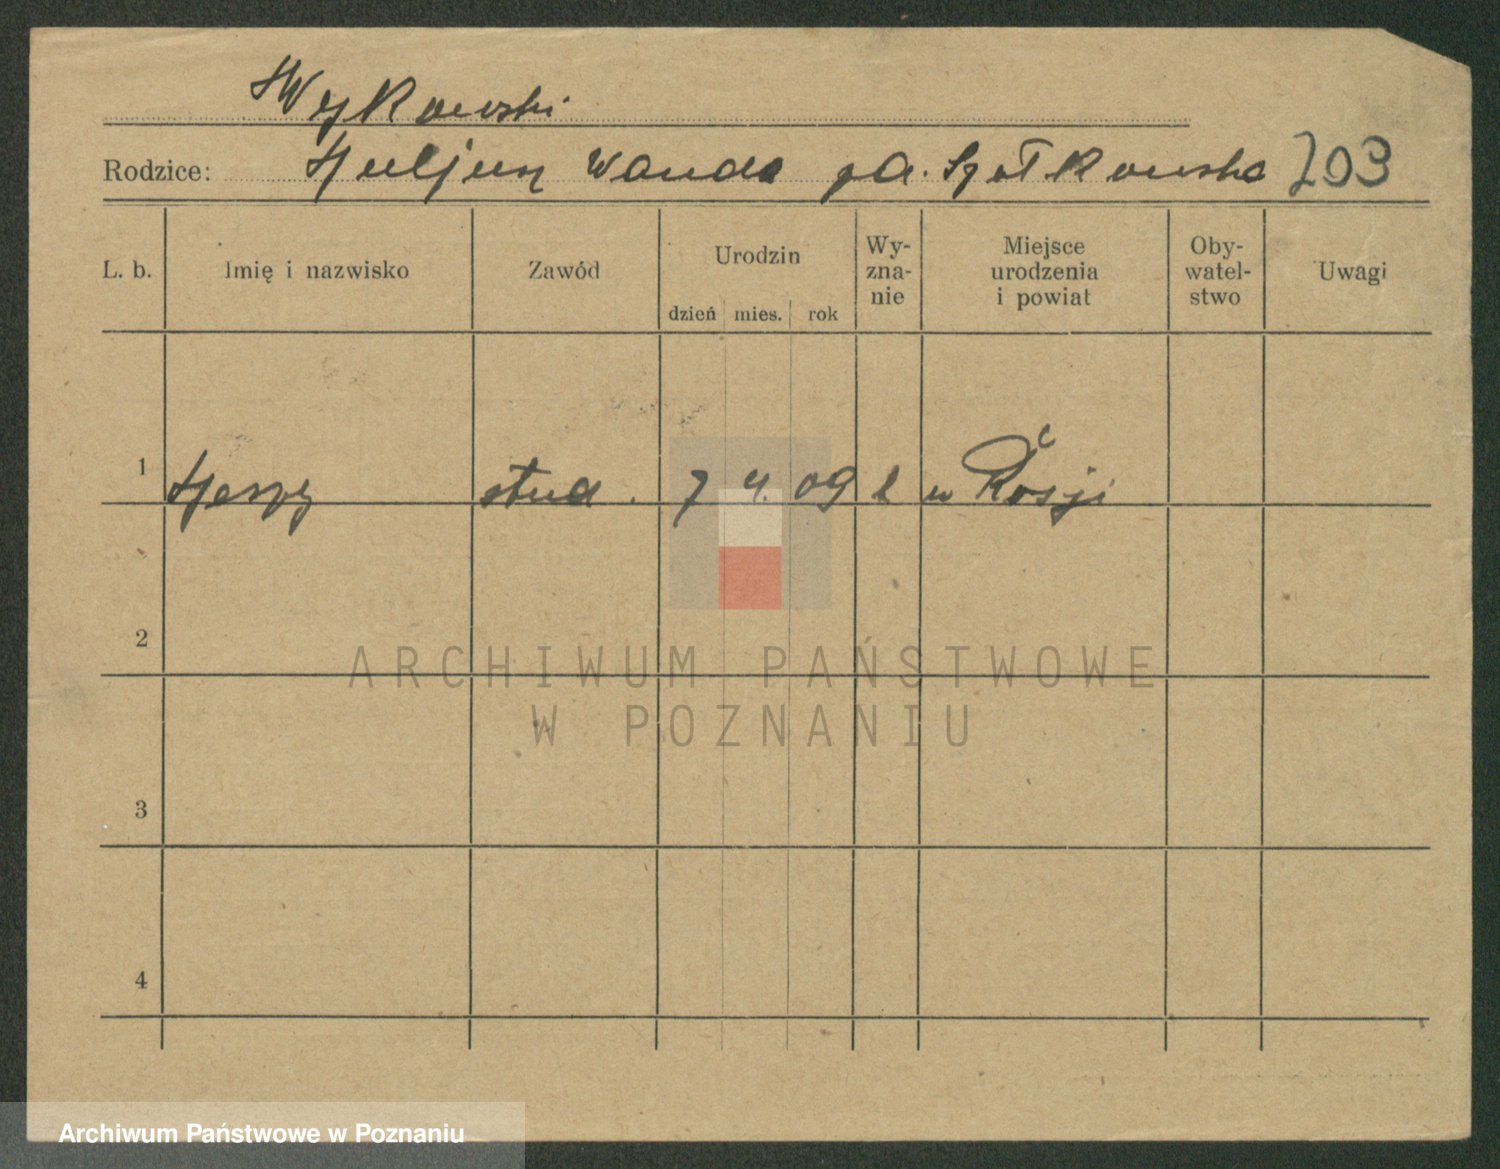 Wykowski
Rodzice: Juljusz Wanda zd. Szołkowska 203
L. b. Imię i nazwisko Zawód Urodzin dzień mies. rok Wy-zna-nie Miejsce urodzenia i powiat Oby-watel-stwo Uwagi
1 Jerzy stud. 7 4. 09 w Rosji
2
3
4
ARCHIWUM PAŃSTWOWE
W POZNANIU
Archiwum Państwowe w Poznaniu